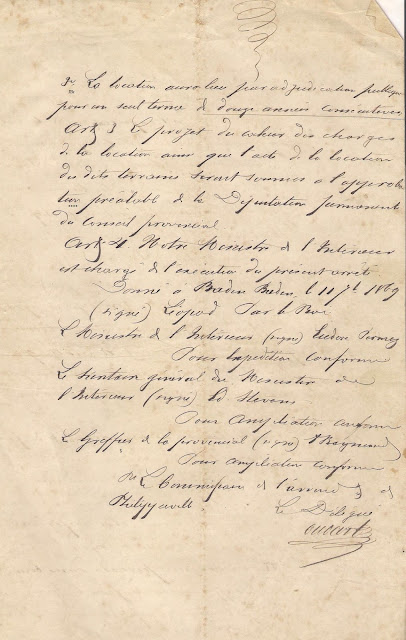 3º La location aura lieu par adjudication publique
pour un seul terme de douze années consécutives
Art 3 Le projet du cahier des charges
de la location ainsi que l'acte de la location
des dits terrains seront soumis a l'approba
tion préalable de la Députation permanente
du Conseil provincial
Art 4. Notre Ministre de l'Intérieur
est chargé de l'exécution du présent arrêté
Donné a Baden Baden, le 11 7b 1869
(signé) Léopold Par le Roi
Le Ministre de l'Intérieur (signé) Eudore Pirmez
Pour expédition conforme
Le Secrétaire général du Ministère de
l'Intérieur (signé) Ed Stevens
Pour ampliation conforme
Le Greffier de la provincial (signé)
Pour ampliation conforme
Le Commissaire de l'arrond de
Philippeville
Le Délégué